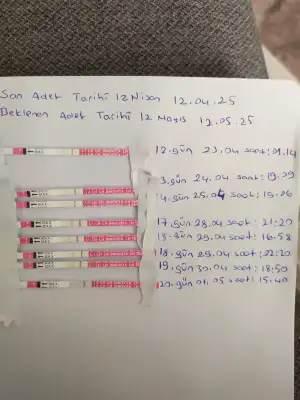 Son Adet Tarihi 12 Nisan 12.04.25
Beklenen Adet Tarihi 12 Mayıs 12.05.25
12.gün 23.04 saat:
3.gün 24.04 saat; 19.09
14.gün 25.04 saat; 15.26
17.gün 28.04 saat: 21:20
18.gün 29.04 saat: 16.58
18.gün 29.04 saat: 22:20
19.gün 30.04 saat: 18:50
20.gün 01.05 saat: 15.40